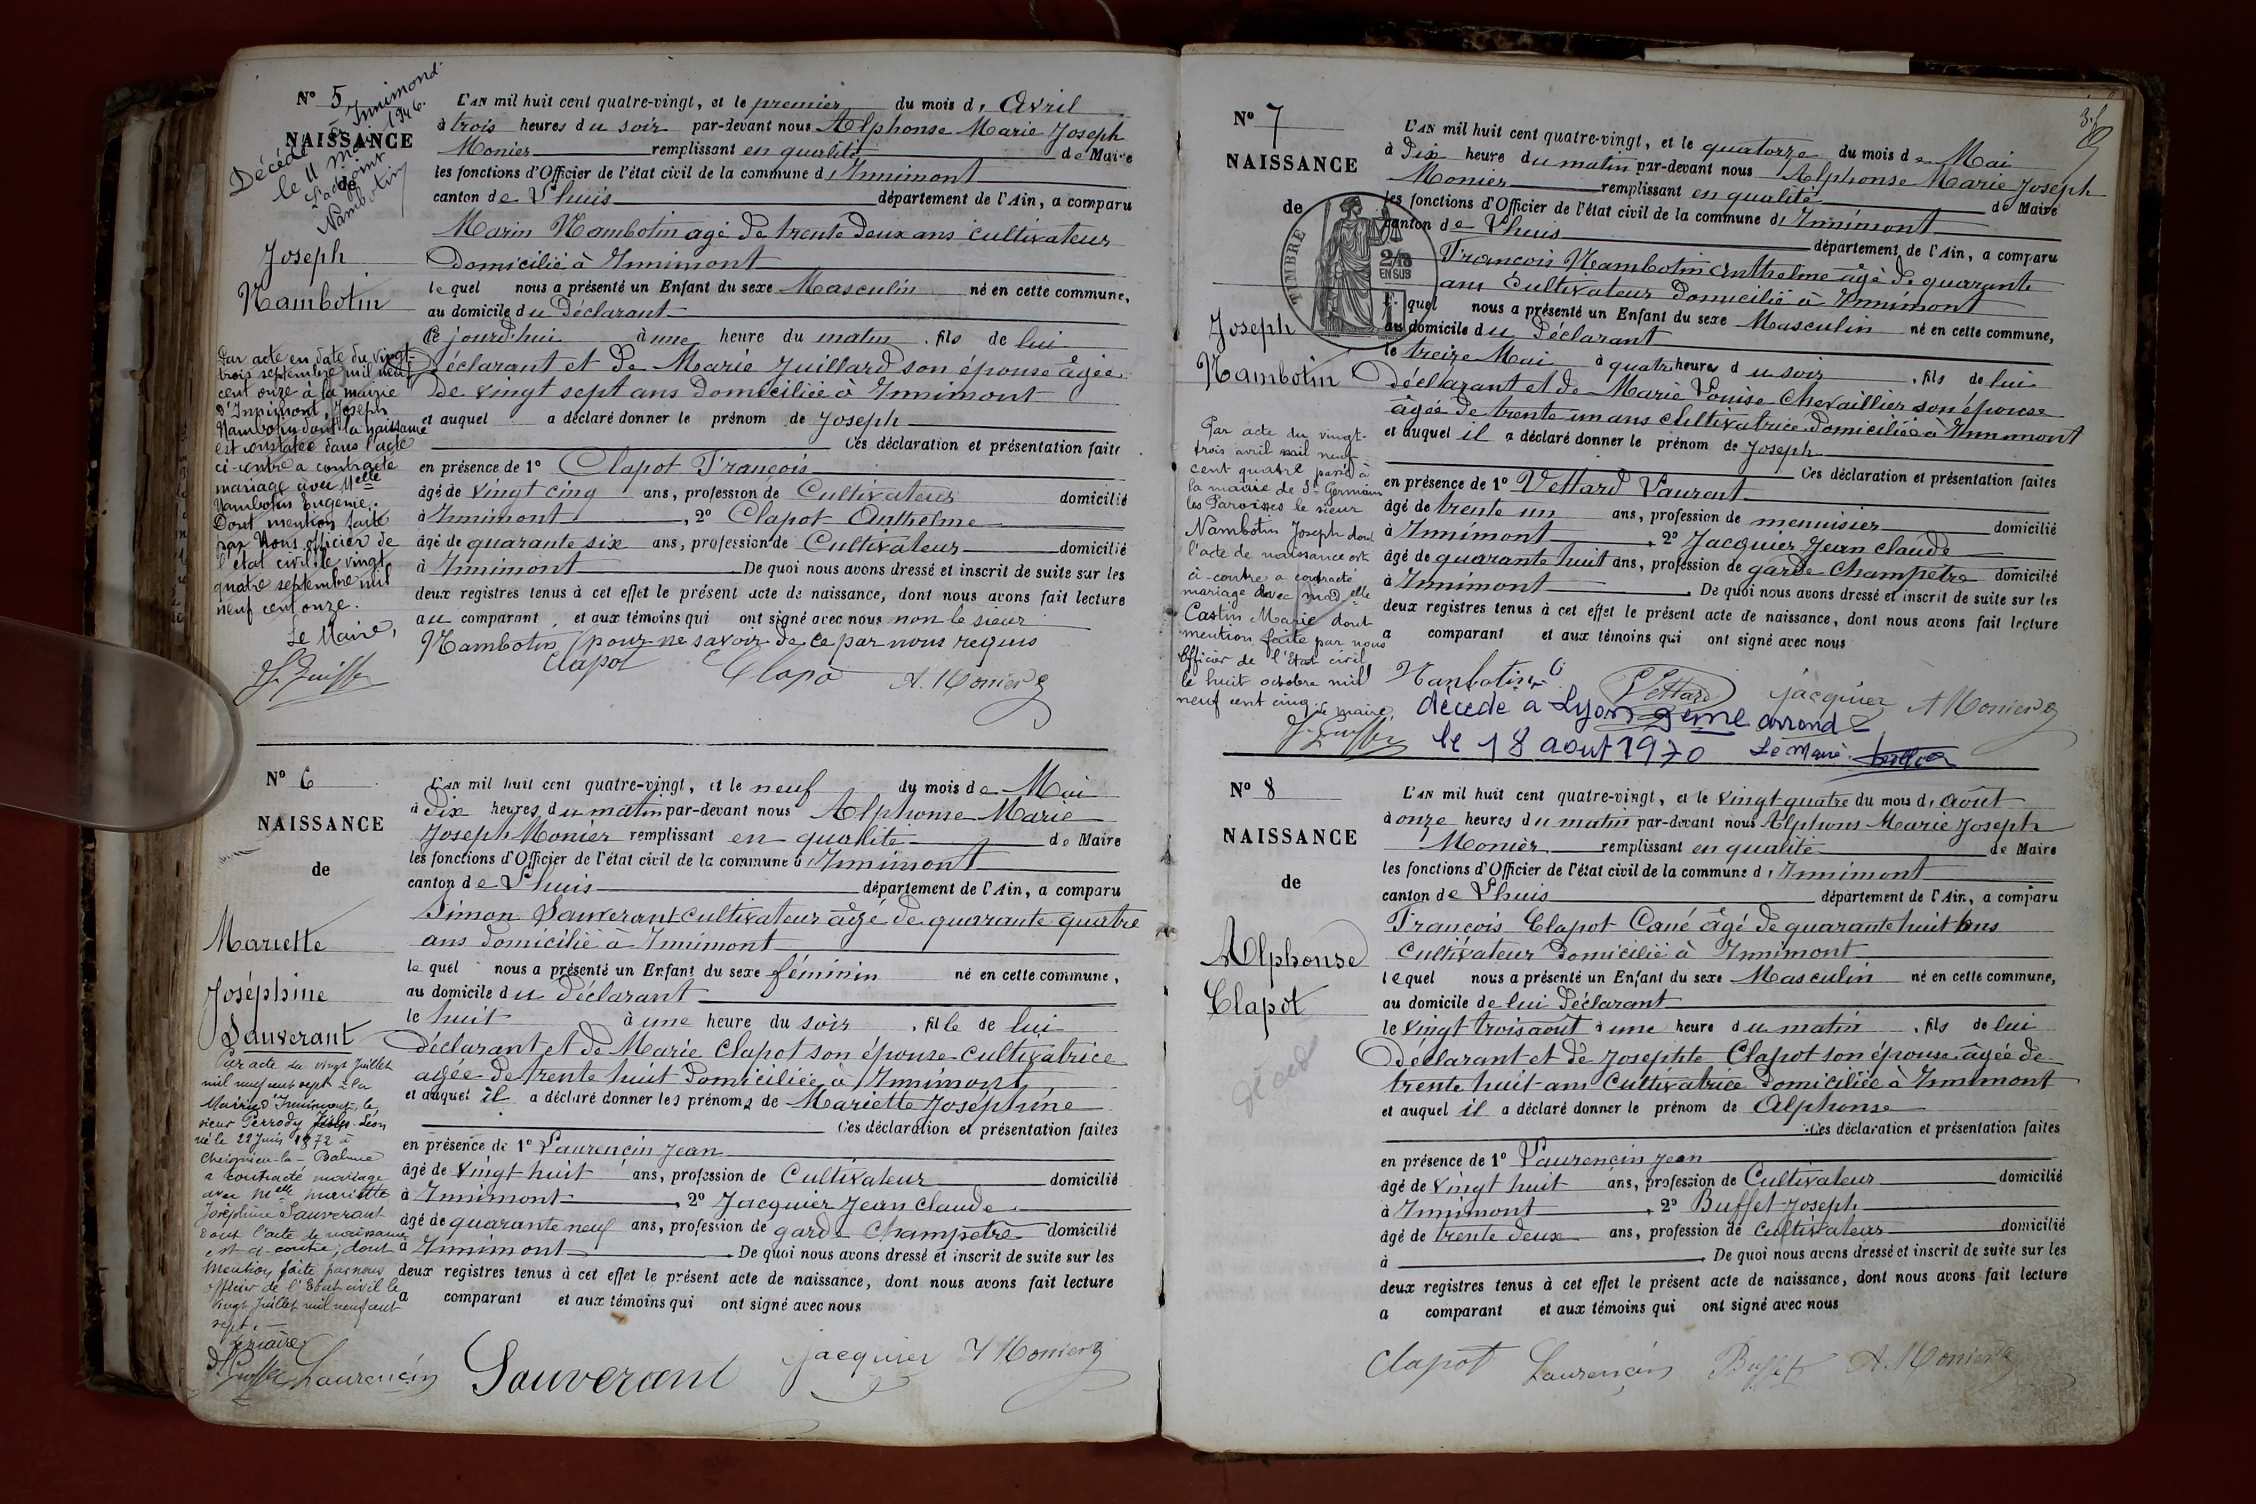 N° 5
NAISSANCE
de
Décédé à Innimond
le 11 mai 1946.
L'adjoint
Nambotin
Joseph
Nambotin
Par acte en date du vingt-
trois septembre mil neuf
cent onze à la mairie
d'Innimont, Joseph
Nambotin dont la naissance
est constatée dans l'acte
ci-contre a contracté
mariage avec Melle
Nambotin Eugénie.
Dont mention faite
par Nous officier de
l'état civil le vingt
quatre septembre mil
neuf cent onze.
Le Maire,
L'AN mil huit cent quatre-vingt, et le premier du mois d' Avril
à trois heures du soir par-devant nous Alphonse Marie Joseph
Monier remplissant en qualité de Maire
les fonctions d'Officier de l'état civil de la commune d'Innimont
canton de Lhuis département de l'Ain, a comparu
Marin Nambotin agé de trente deux ans cultivateur
Domicilié à Innimont
lequel nous a présenté un Enfant du sexe Masculin né en cette commune,
au domicile du Déclarant
Ce jourd'hui à une heure du matin, fils de lui
Déclarant et de Marie Juillard son épouse âgée
de vingt sept ans domiciliée à Innimont
et auquel a déclaré donner le prénom de Joseph
Ces déclaration et présentation faites
en présence de 1° Clapot François
âgé de vingt cinq ans, profession de Cultivateur domicilié
à Innimont, 2° Clapot Anthelme
âgé de quarante six ans, profession de Cultivateur domicilié
à Innimont De quoi nous avons dressé et inscrit de suite sur les
deux registres tenus à cet effet le présent acte de naissance, dont nous avons fait lecture
au comparant, et aux témoins qui ont signé avec nous non le sieur
Nambotin pour ne savoir de ce par nous requis
Clapot Clapo A. Monier
N° 6
NAISSANCE
de
Mariette
Joséphine
Sauverant
Par acte du vingt Juillet
mil neuf cent sept à la
Mairie d'Innimont, le
sieur Perrody Léon
né le 22 Juin 1872 à
Cheignieu-la-Balme
a contracté mariage
avec Melle Mariette
Joséphine Sauverant
dont l'acte de naissance
est ci-contre, dont
mention faite par nous
officier de l'Etat civil le
vingt Juillet mil neuf cent
sept.
Le maire
L'AN mil huit cent quatre-vingt, et le neuf du mois de Mai
à Dix heures du matin par-devant nous Alphonse Marie
Joseph Monier remplissant en qualité de Maire
les fonctions d'Officier de l'état civil de la commune d'Innimont
canton de Lhuis département de l'Ain, a comparu
Simon Sauverant cultivateur âgé de quarante quatre
ans domicilié à Innimont
lequel nous a présenté un Enfant du sexe féminin né en cette commune,
au domicile du Déclarant
le huit à une heure du soir, fille de lui
Déclarant et de Marie Clapot son épouse cultivatrice
agée de trente huit Domiciliée à Innimont
et auquel il a déclaré donner les prénoms de Mariette Joséphine
Ces déclaration et présentation faites
en présence de 1° Laurencin Jean
âgé de vingt huit ans, profession de Cultivateur domicilié
à Innimont, 2° Jacquier Jean Claude
âgé de quarante neuf ans, profession de garde Champetre domicilié
à Innimont De quoi nous avons dressé et inscrit de suite sur les
deux registres tenus à cet effet le présent acte de naissance, dont nous avons fait lecture
a comparant et aux témoins qui ont signé avec nous
Laurencin Sauverant jacquier A Monier
N° 7
NAISSANCE
de
TIMBRE
EN SUS
Joseph
Nambotin
Par acte du vingt-
trois avril mil neuf
cent quatre passé à
la mairie de St Germain
les Paroisses le sieur
Nambotin Joseph dont
l'acte de naissance est
ci-contre a contracté
mariage avec Madelle
Castin Marie dont
mention faite par nous
Officier de l'Etat civil
le huit octobre mil
neuf cent cinq. Le maire,
L'AN mil huit cent quatre-vingt, et le quatorze du mois de Mai
à Dix heure du matin par-devant nous Alphonse Marie Joseph
Monier remplissant en qualité de Maire
les fonctions d'Officier de l'état civil de la commune d'Innimont
canton de Lhuis département de l'Ain, a comparu
François Nambotin Anthelme âgé de quarante
ans Cultivateur domicilié à Innimont
lequel nous a présenté un Enfant du sexe Masculin né en cette commune,
au domicile du Déclarant
le treize Mai à quatre heures du soir, fils de lui
déclarant et de Marie Louise Chevaillier son épouse
âgée de trente un ans Cultivatrice Domiciliée à Innimont
et auquel il a déclaré donner le prénom de Joseph
Ces déclaration et présentation faites
en présence de 1° Vettard Laurent
âgé de trente un ans, profession de menuisier domicilié
à Innimont, 2° Jacquier Jean claude
âgé de quarante huit ans, profession de garde Champetre domicilié
à Innimont De quoi nous avons dressé et inscrit de suite sur les
deux registres tenus à cet effet le présent acte de naissance, dont nous avons fait lecture
a comparant et aux témoins qui ont signé avec nous
Nambotin Vettard jacquier A Monier
décédé à Lyon 2eme arrond
le 18 aout 1970 Le Maire
N° 8
NAISSANCE
de
Alphonse
Clapot
décédé
L'AN mil huit cent quatre-vingt, et le vingt quatre du mois d'Août
à onze heures du matin par-devant nous Alphons Marie Joseph
Monier remplissant en qualité de Maire
les fonctions d'Officier de l'état civil de la commune d'Innimont
canton de Lhuis département de l'Ain, a comparu
François Clapot Cané âgé de quarante huit ans
Cultivateur Domicilié à Innimont
lequel nous a présenté un Enfant du sexe Masculin né en cette commune,
au domicile de lui Déclarant
le vingt trois août à une heure du matin, fils de lui
Déclarant et de Josephte Clapot son épouse âgée de
trente huit ans Cultivatrice Domiciliée à Innimont
et auquel il a déclaré donner le prénom de Alphonse
Ces déclaration et présentation faites
en présence de 1° Laurencin Jean
âgé de vingt huit ans, profession de Cultivateur domicilié
à Innimont, 2° Buffet Joseph
âgé de trente deux ans, profession de cultivateur domicilié
à De quoi nous avons dressé et inscrit de suite sur les
deux registres tenus à cet effet le présent acte de naissance, dont nous avons fait lecture
a comparant et aux témoins qui ont signé avec nous
Clapot Laurencin Buffet A. Monier